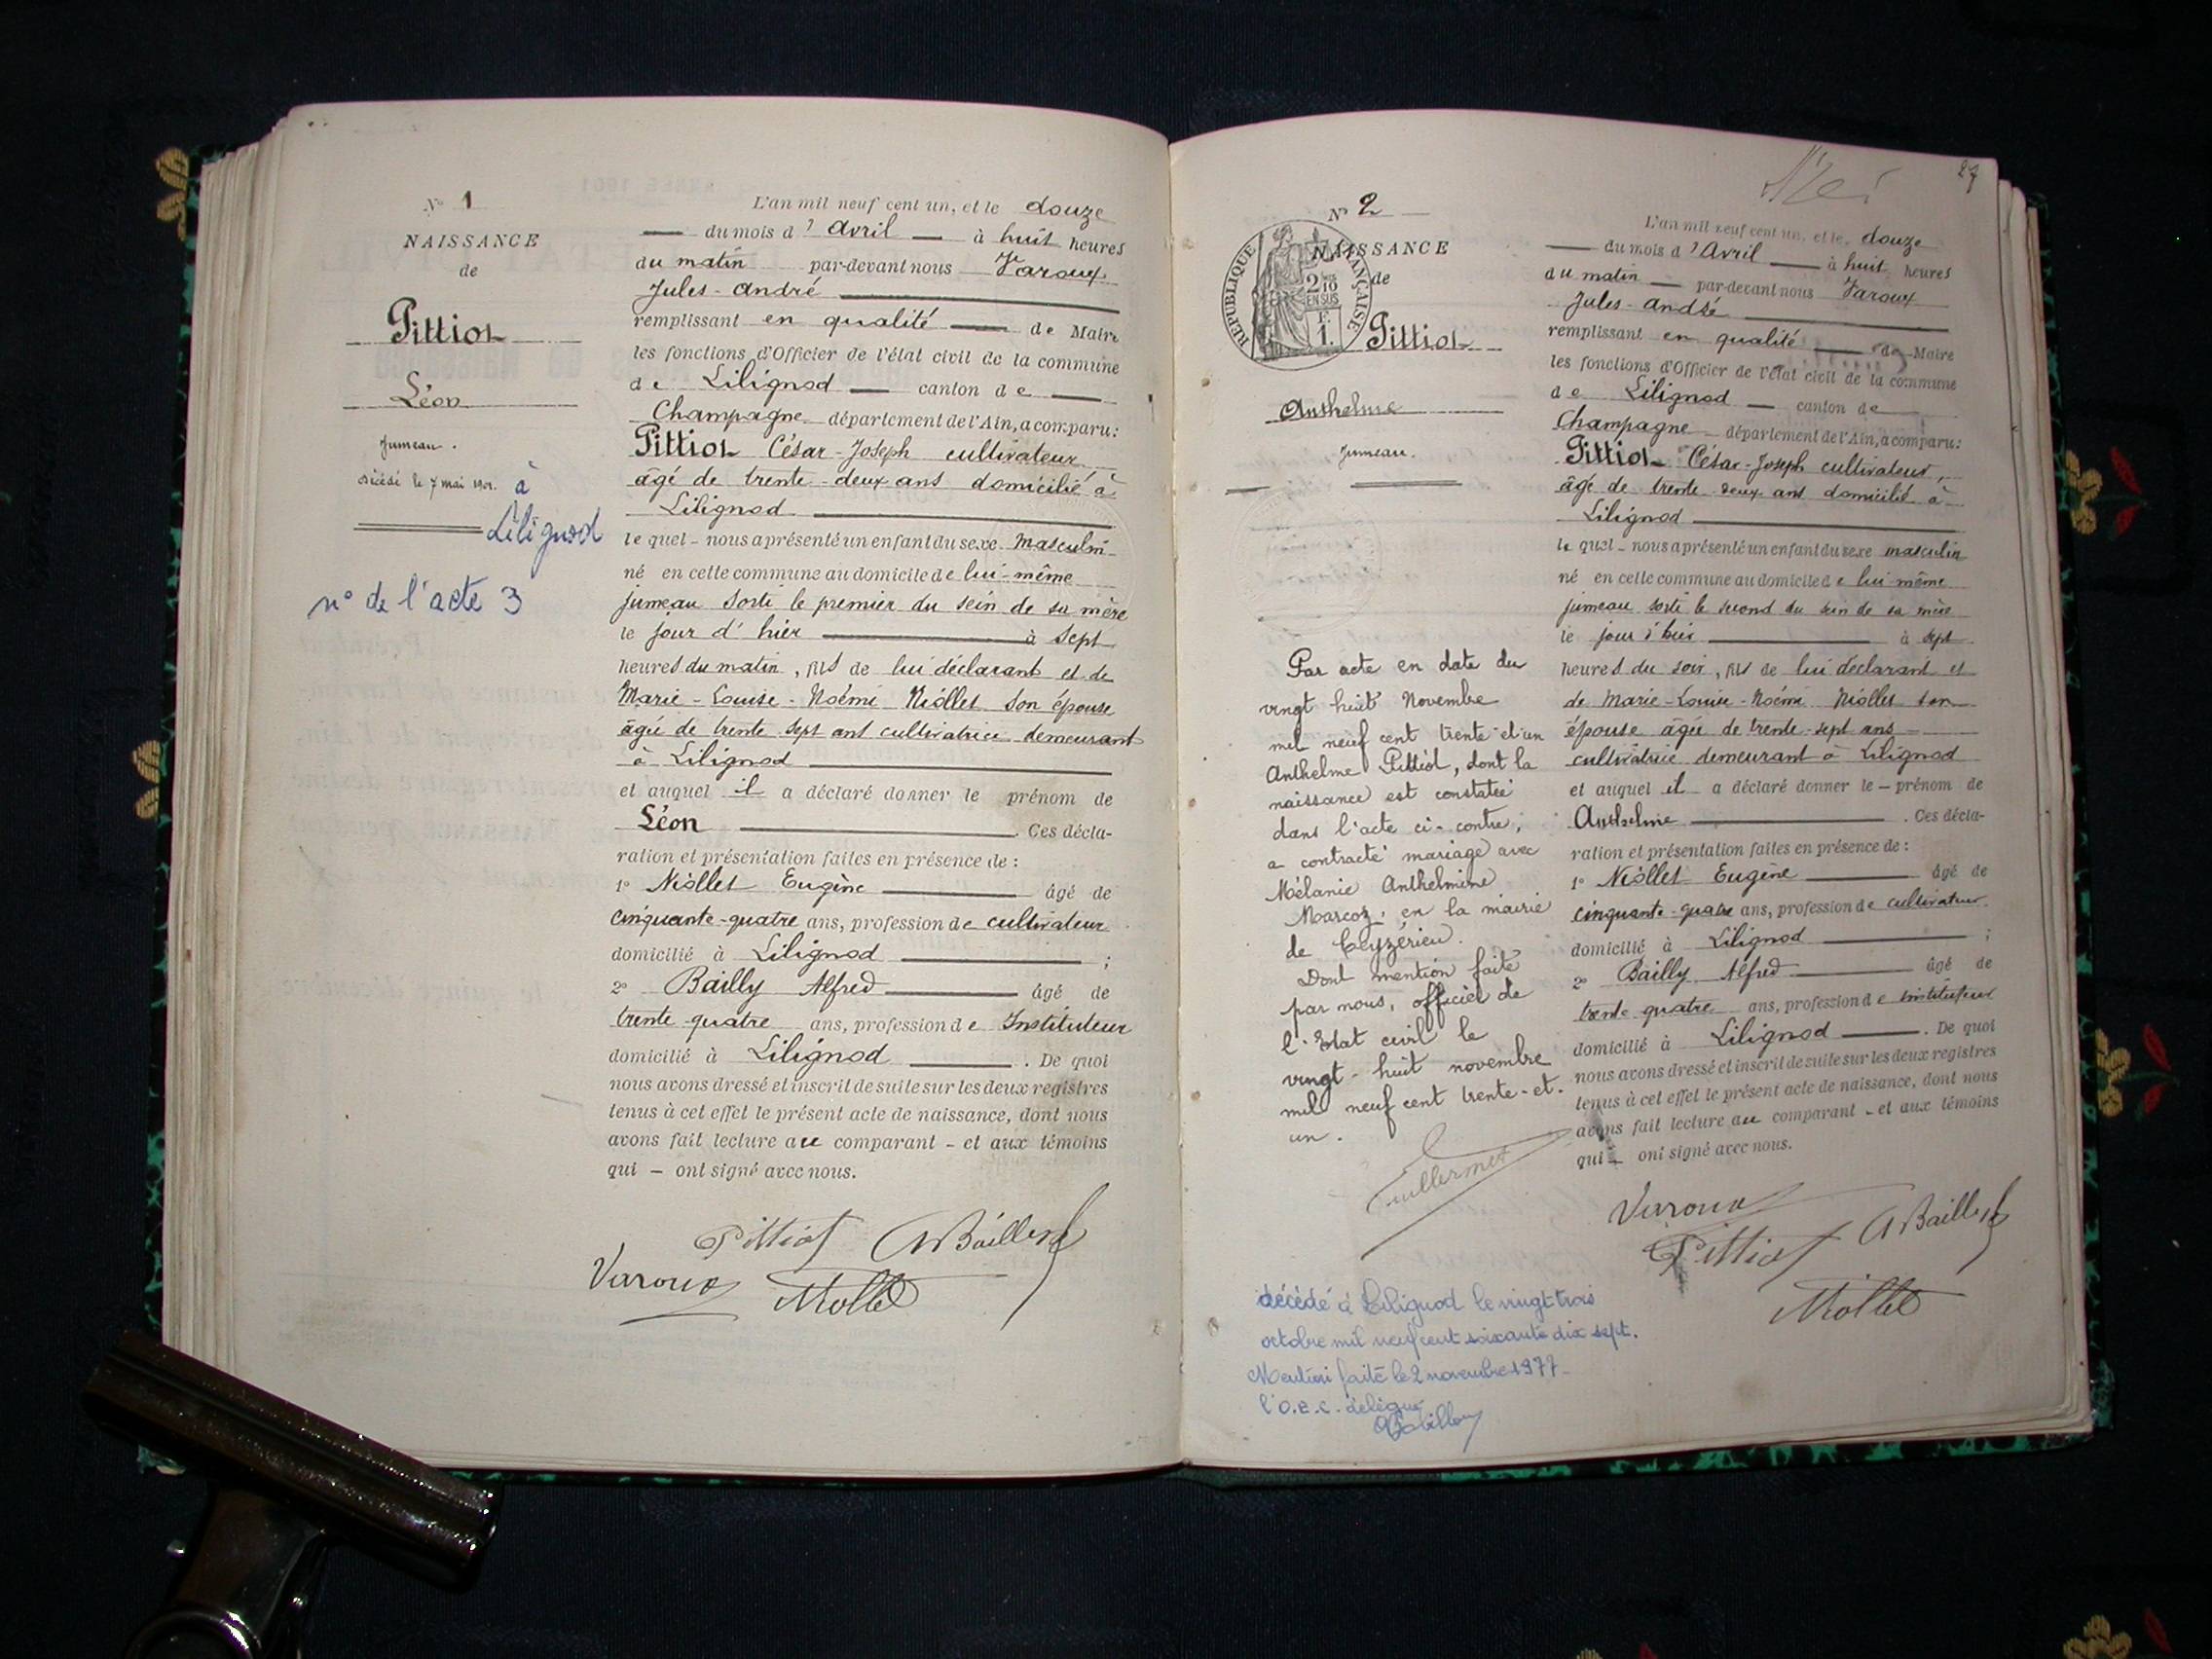 N° 1
NAISSANCE
de
Pittiot
Léon
Jumeau.
décédé le 7 mai 1901. à
Lilignod
n° de l'acte 3
L'an mil neuf cent un, et le douze
du mois d'Avril à huit heures
du matin par-devant nous Varoux
Jules-André
remplissant en qualité de Maire
les fonctions d'Officier de l'état civil de la commune
de Lilignod canton de
Champagne département de l'Ain, a comparu:
Pittiot César-Joseph cultivateur,
âgé de trente-deux ans domicilié à
Lilignod
le quel - nous a présenté un enfant du sexe masculin
né en cette commune au domicile de lui-même
jumeau sorti le premier du sein de sa mère
le jour d'hier à sept
heures du matin, fils de lui déclarant et de
Marie-Louise-Noémi Niollet son épouse
âgée de trente sept ans cultivatrice demeurant
à Lilignod
et auquel il a déclaré donner le prénom de
Léon . Ces décla-
ration et présentation faites en présence de :
1° Niollet Eugène âgé de
cinquante-quatre ans, profession de cultivateur
domicilié à Lilignod ;
2° Bailly Alfred âgé de
trente-quatre ans, profession de Instituteur
domicilié à Lilignod . De quoi
nous avons dressé et inscrit de suite sur les deux registres
tenus à cet effet le présent acte de naissance, dont nous
avons fait lecture au comparant - et aux témoins
qui - ont signé avec nous.
Pittiot ABailly
Varoux Niollet
27
N° 2
NAISSANCE
de
RÉPUBLIQUE FRANÇAISE
2/10
EN SUS
F.
1.
Pittiot
Anthelme
Jumeau.
Par acte en date du
vingt huit Novembre
mil neuf cent trente-et-un
Anthelme Pittiot, dont la
naissance est constatée
dans l'acte ci-contre,
a contracté mariage avec
Mélanie Anthelmine
Marcoz, en la mairie
de Ceyzérieu.
Dont mention faite
par nous, officier de
l'Etat civil le
vingt-huit novembre
mil neuf cent trente-et-
un.
Guillermet
décédé à Lilignod le vingt trois
octobre mil neuf cent soixante dix sept.
Mention faite le 2 novembre 1977-
l'O.E.C. délégué
L'an mil neuf cent un, et le douze
du mois d'Avril à huit heures
du matin par-devant nous Varoux
Jules-André
remplissant en qualité de Maire
les fonctions d'Officier de l'état civil de la commune
de Lilignod canton de
Champagne département de l'Ain, a comparu:
Pittiot César-Joseph cultivateur,
âgé de trente-deux ans domicilié à
Lilignod
le quel - nous a présenté un enfant du sexe masculin
né en cette commune au domicile de lui-même
jumeau sorti le second du sein de sa mère
le jour d'hier à sept
heures du soir, fils de lui déclarant et
de Marie-Louise-Noémi Niollet son
épouse âgée de trente-sept ans
cultivatrice demeurant à Lilignod
et auquel il a déclaré donner le - prénom de
Anthelme . Ces décla-
ration et présentation faites en présence de :
1° Niollet Eugène âgé de
cinquante-quatre ans, profession de cultivateur
domicilié à Lilignod ;
2° Bailly Alfred âgé de
trente quatre ans, profession de instituteur
domicilié à Lilignod . De quoi
nous avons dressé et inscrit de suite sur les deux registres
tenus à cet effet le présent acte de naissance, dont nous
avons fait lecture au comparant - et aux témoins
qui - ont signé avec nous.
Varoux ABailly
Pittiot
Niollet